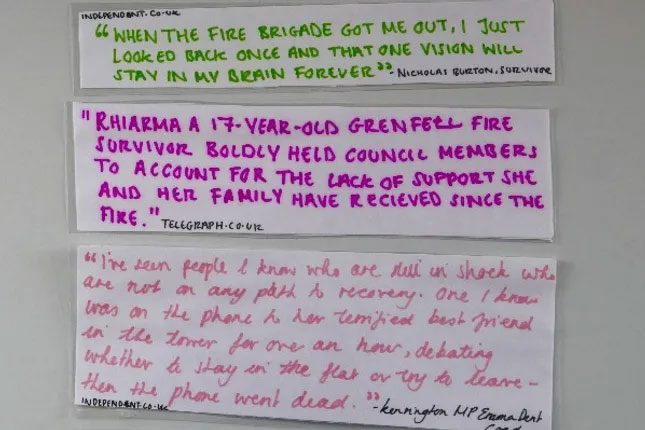 INDEPENDENT.CO.UK
“WHEN THE FIRE BRIGADE GOT ME OUT, I JUST
LOOKED BACK ONCE AND THAT ONE VISION WILL
STAY IN MY BRAIN FOREVER” - NICHOLAS BURTON, SURVIVOR
"RHIARMA A 17-YEAR-OLD GRENFELL FIRE
SURVIVOR BOLDLY HELD COUNCIL MEMBERS
TO ACCOUNT FOR THE LACK OF SUPPORT SHE
AND HER FAMILY HAVE RECIEVED SINCE THE
FIRE." TELEGRAPH.CO.UK
“I've seen people I know who are still in shock who
are not on any path to recovery. One I know
was on the phone to her terrified best friend
in the tower for over an hour, debating
whether to stay in the flat or try to leave -
then the phone went dead.”
INDEPENDENT.CO.UK - Kennington MP Emma Dent
Coad